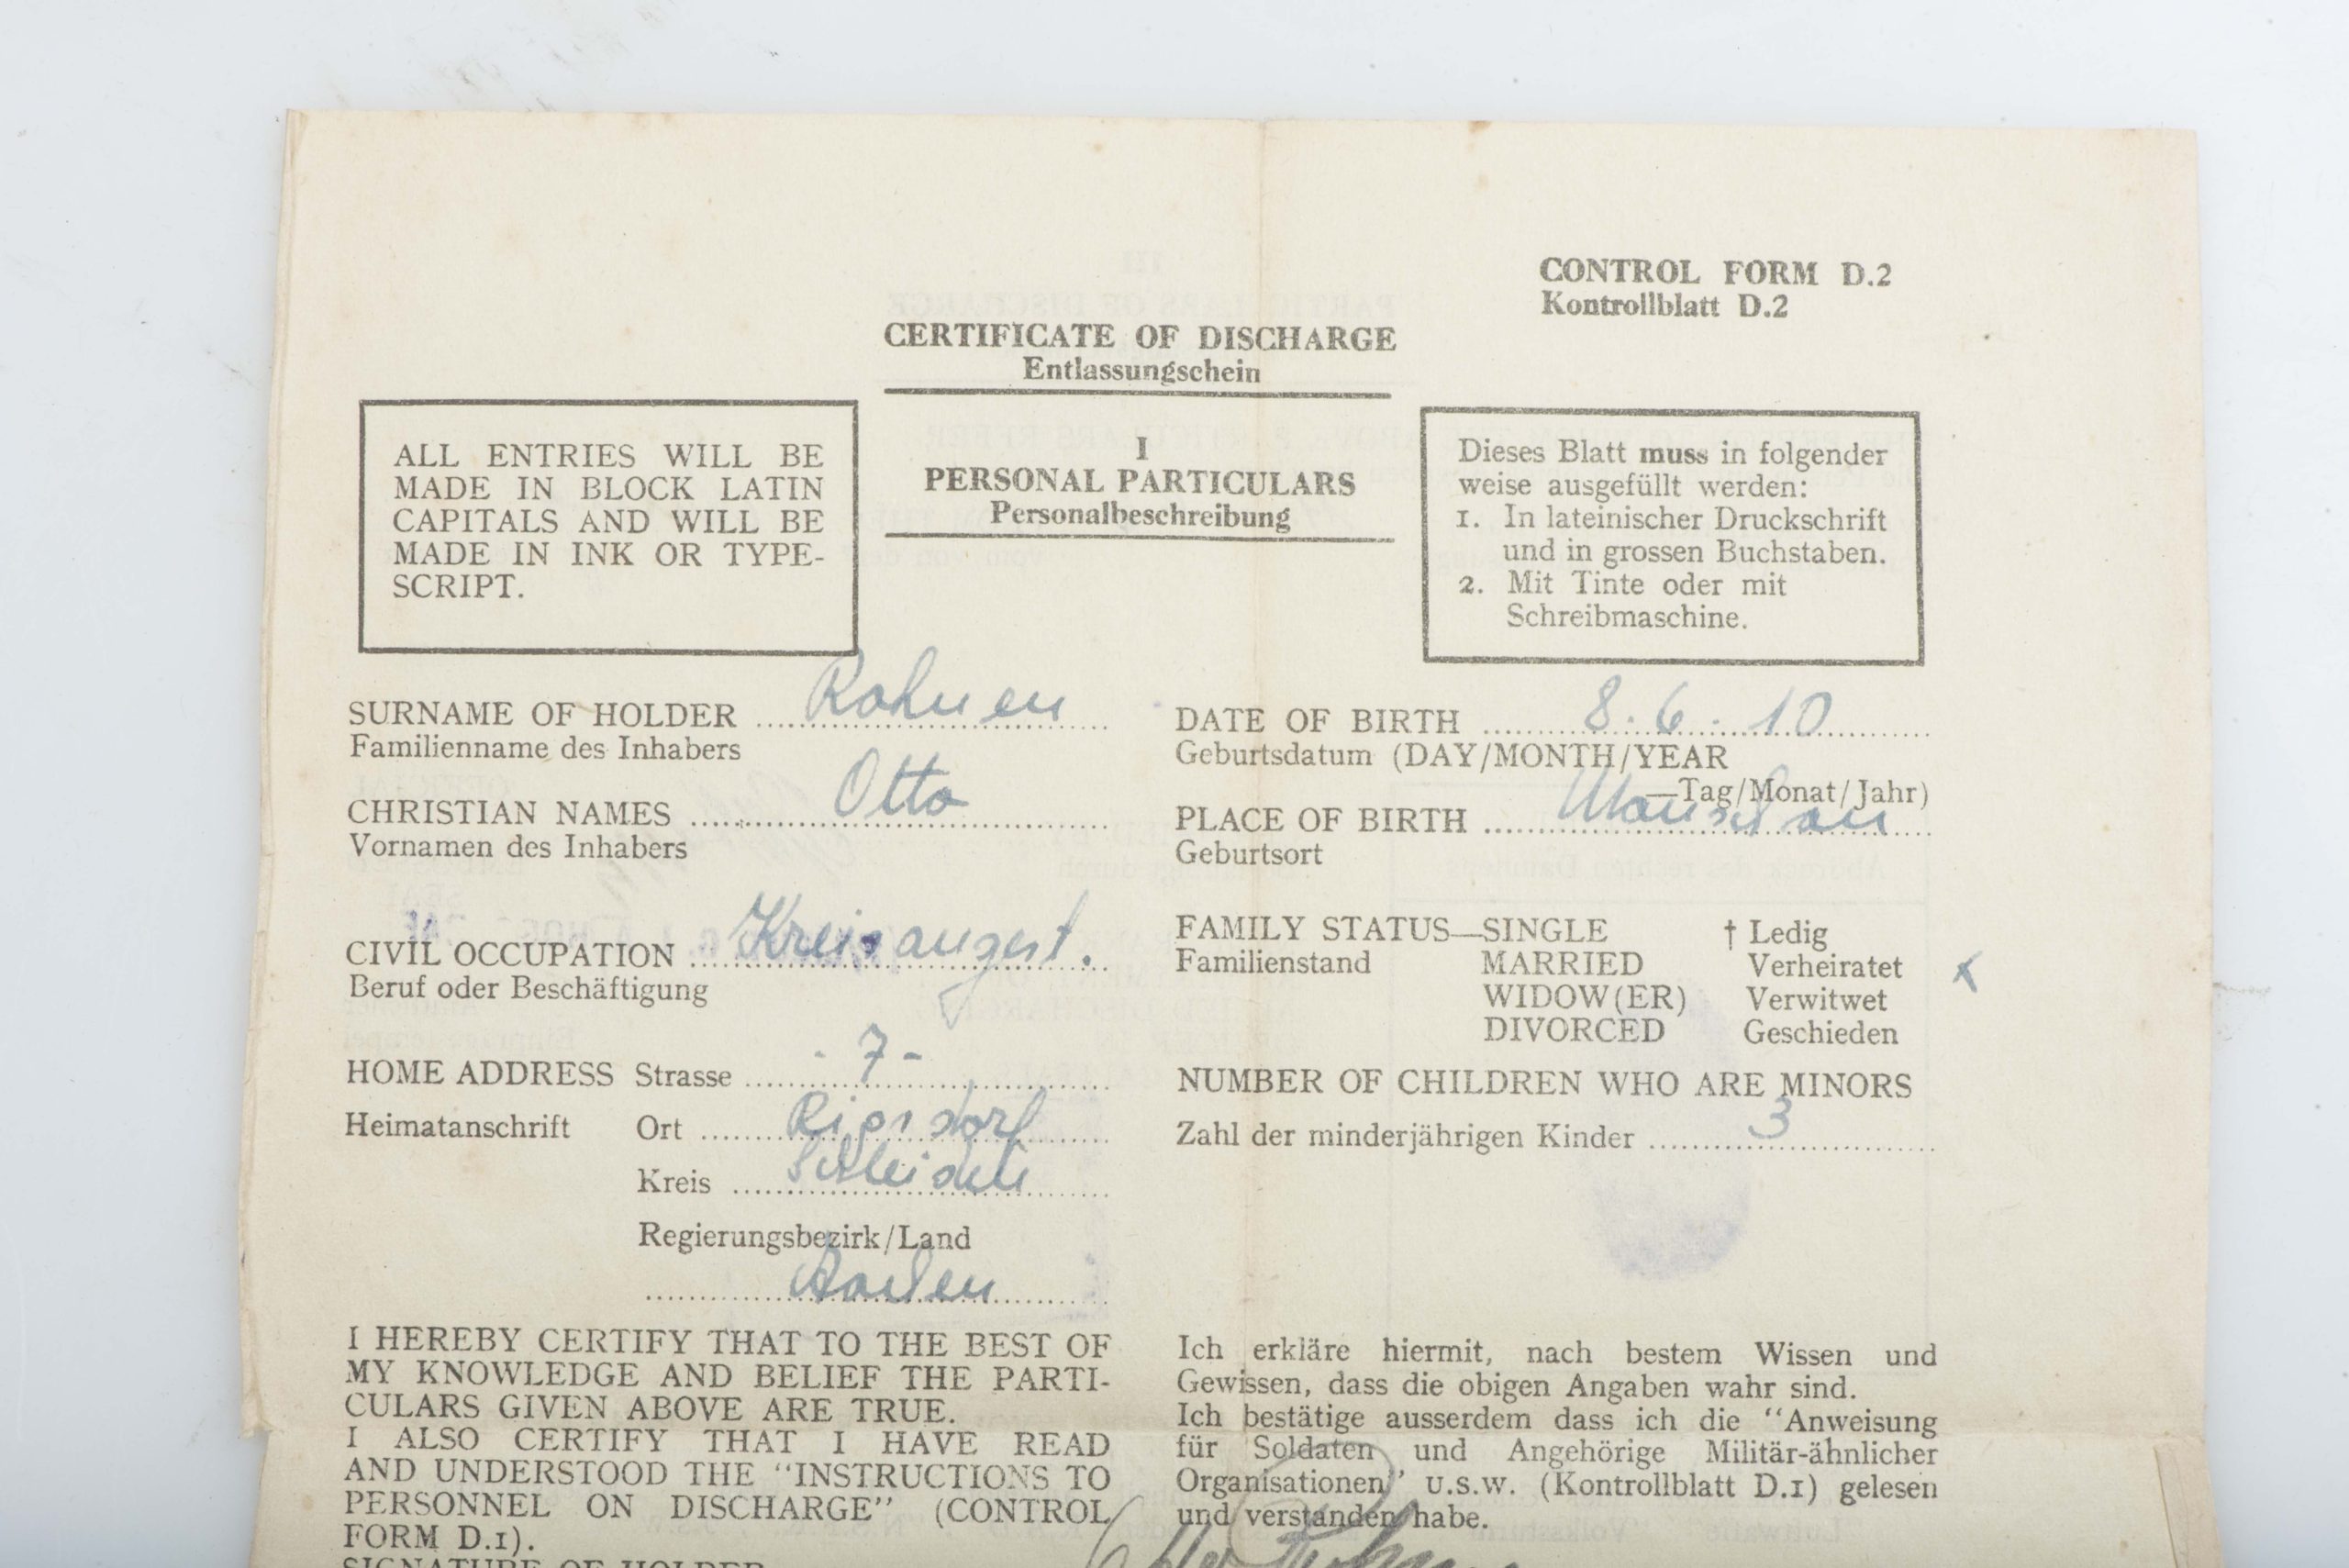 CONTROL FORM D.2
Kontrollblatt D.2
CERTIFICATE OF DISCHARGE
Entlassungschein
ALL ENTRIES WILL BE
MADE IN BLOCK LATIN
CAPITALS AND WILL BE
MADE IN INK OR TYPE-
SCRIPT.
I
PERSONAL PARTICULARS
Personalbeschreibung
Dieses Blatt muss in folgender
weise ausgefüllt werden:
1. In lateinischer Druckschrift
und in grossen Buchstaben.
2. Mit Tinte oder mit
Schreibmaschine.
SURNAME OF HOLDER Rohnen
Familienname des Inhabers
CHRISTIAN NAMES Otto
Vornamen des Inhabers
CIVIL OCCUPATION Kreisangest.
Beruf oder Beschäftigung
HOME ADDRESS Strasse - 7 -
Heimatanschrift Ort Ripsdorf
Kreis Schleiden
Regierungsbezirk/Land
Aachen
DATE OF BIRTH 8.6.10
Geburtsdatum (DAY/MONTH/YEAR
—Tag/Monat/Jahr)
PLACE OF BIRTH
Geburtsort
FAMILY STATUS—SINGLE † Ledig
Familienstand MARRIED Verheiratet x
WIDOW(ER) Verwitwet
DIVORCED Geschieden
NUMBER OF CHILDREN WHO ARE MINORS
Zahl der minderjährigen Kinder 3
I HEREBY CERTIFY THAT TO THE BEST OF
MY KNOWLEDGE AND BELIEF THE PARTI-
CULARS GIVEN ABOVE ARE TRUE.
I ALSO CERTIFY THAT I HAVE READ
AND UNDERSTOOD THE "INSTRUCTIONS TO
PERSONNEL ON DISCHARGE" (CONTROL
FORM D.1).
SIGNATURE OF HOLDER
Ich erkläre hiermit, nach bestem Wissen und
Gewissen, dass die obigen Angaben wahr sind.
Ich bestätige ausserdem dass ich die "Anweisung
für Soldaten und Angehörige Militär-ähnlicher
Organisationen" u.s.w. (Kontrollblatt D.1) gelesen
und verstanden habe.